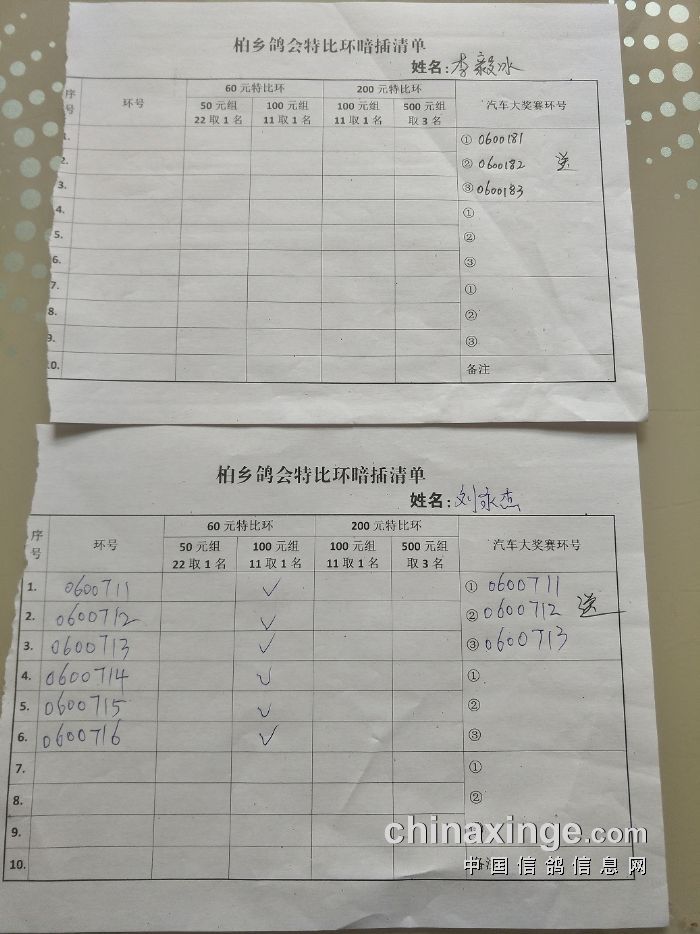 柏乡鸽会特比环暗插清单
姓名：李毅冰
序号 环号 60元特比环 200元特比环 汽车大奖赛环号
50元组 22取1名 100元组 11取1名 100元组 11取1名 500元组 取3名
1. ① 0600181
2. ② 0600182 送
3. ③ 0600183
4. ①
5. ②
6. ③
7. ①
8. ②
9. ③
10. 备注
柏乡鸽会特比环暗插清单
姓名：刘永杰
序号 环号 60元特比环 200元特比环 汽车大奖赛环号
50元组 22取1名 100元组 11取1名 100元组 11取1名 500元组 取3名
1. 0600711 ✓ ① 0600711
2. 0600712 ✓ ② 0600712 送
3. 0600713 ✓ ③ 0600713
4. 0600714 ✓ ①
5. 0600715 ✓ ②
6. 0600716 ✓ ③
7. ①
8. ②
9.
10. 备注
chinaxinge.com
中国信鸽信息网